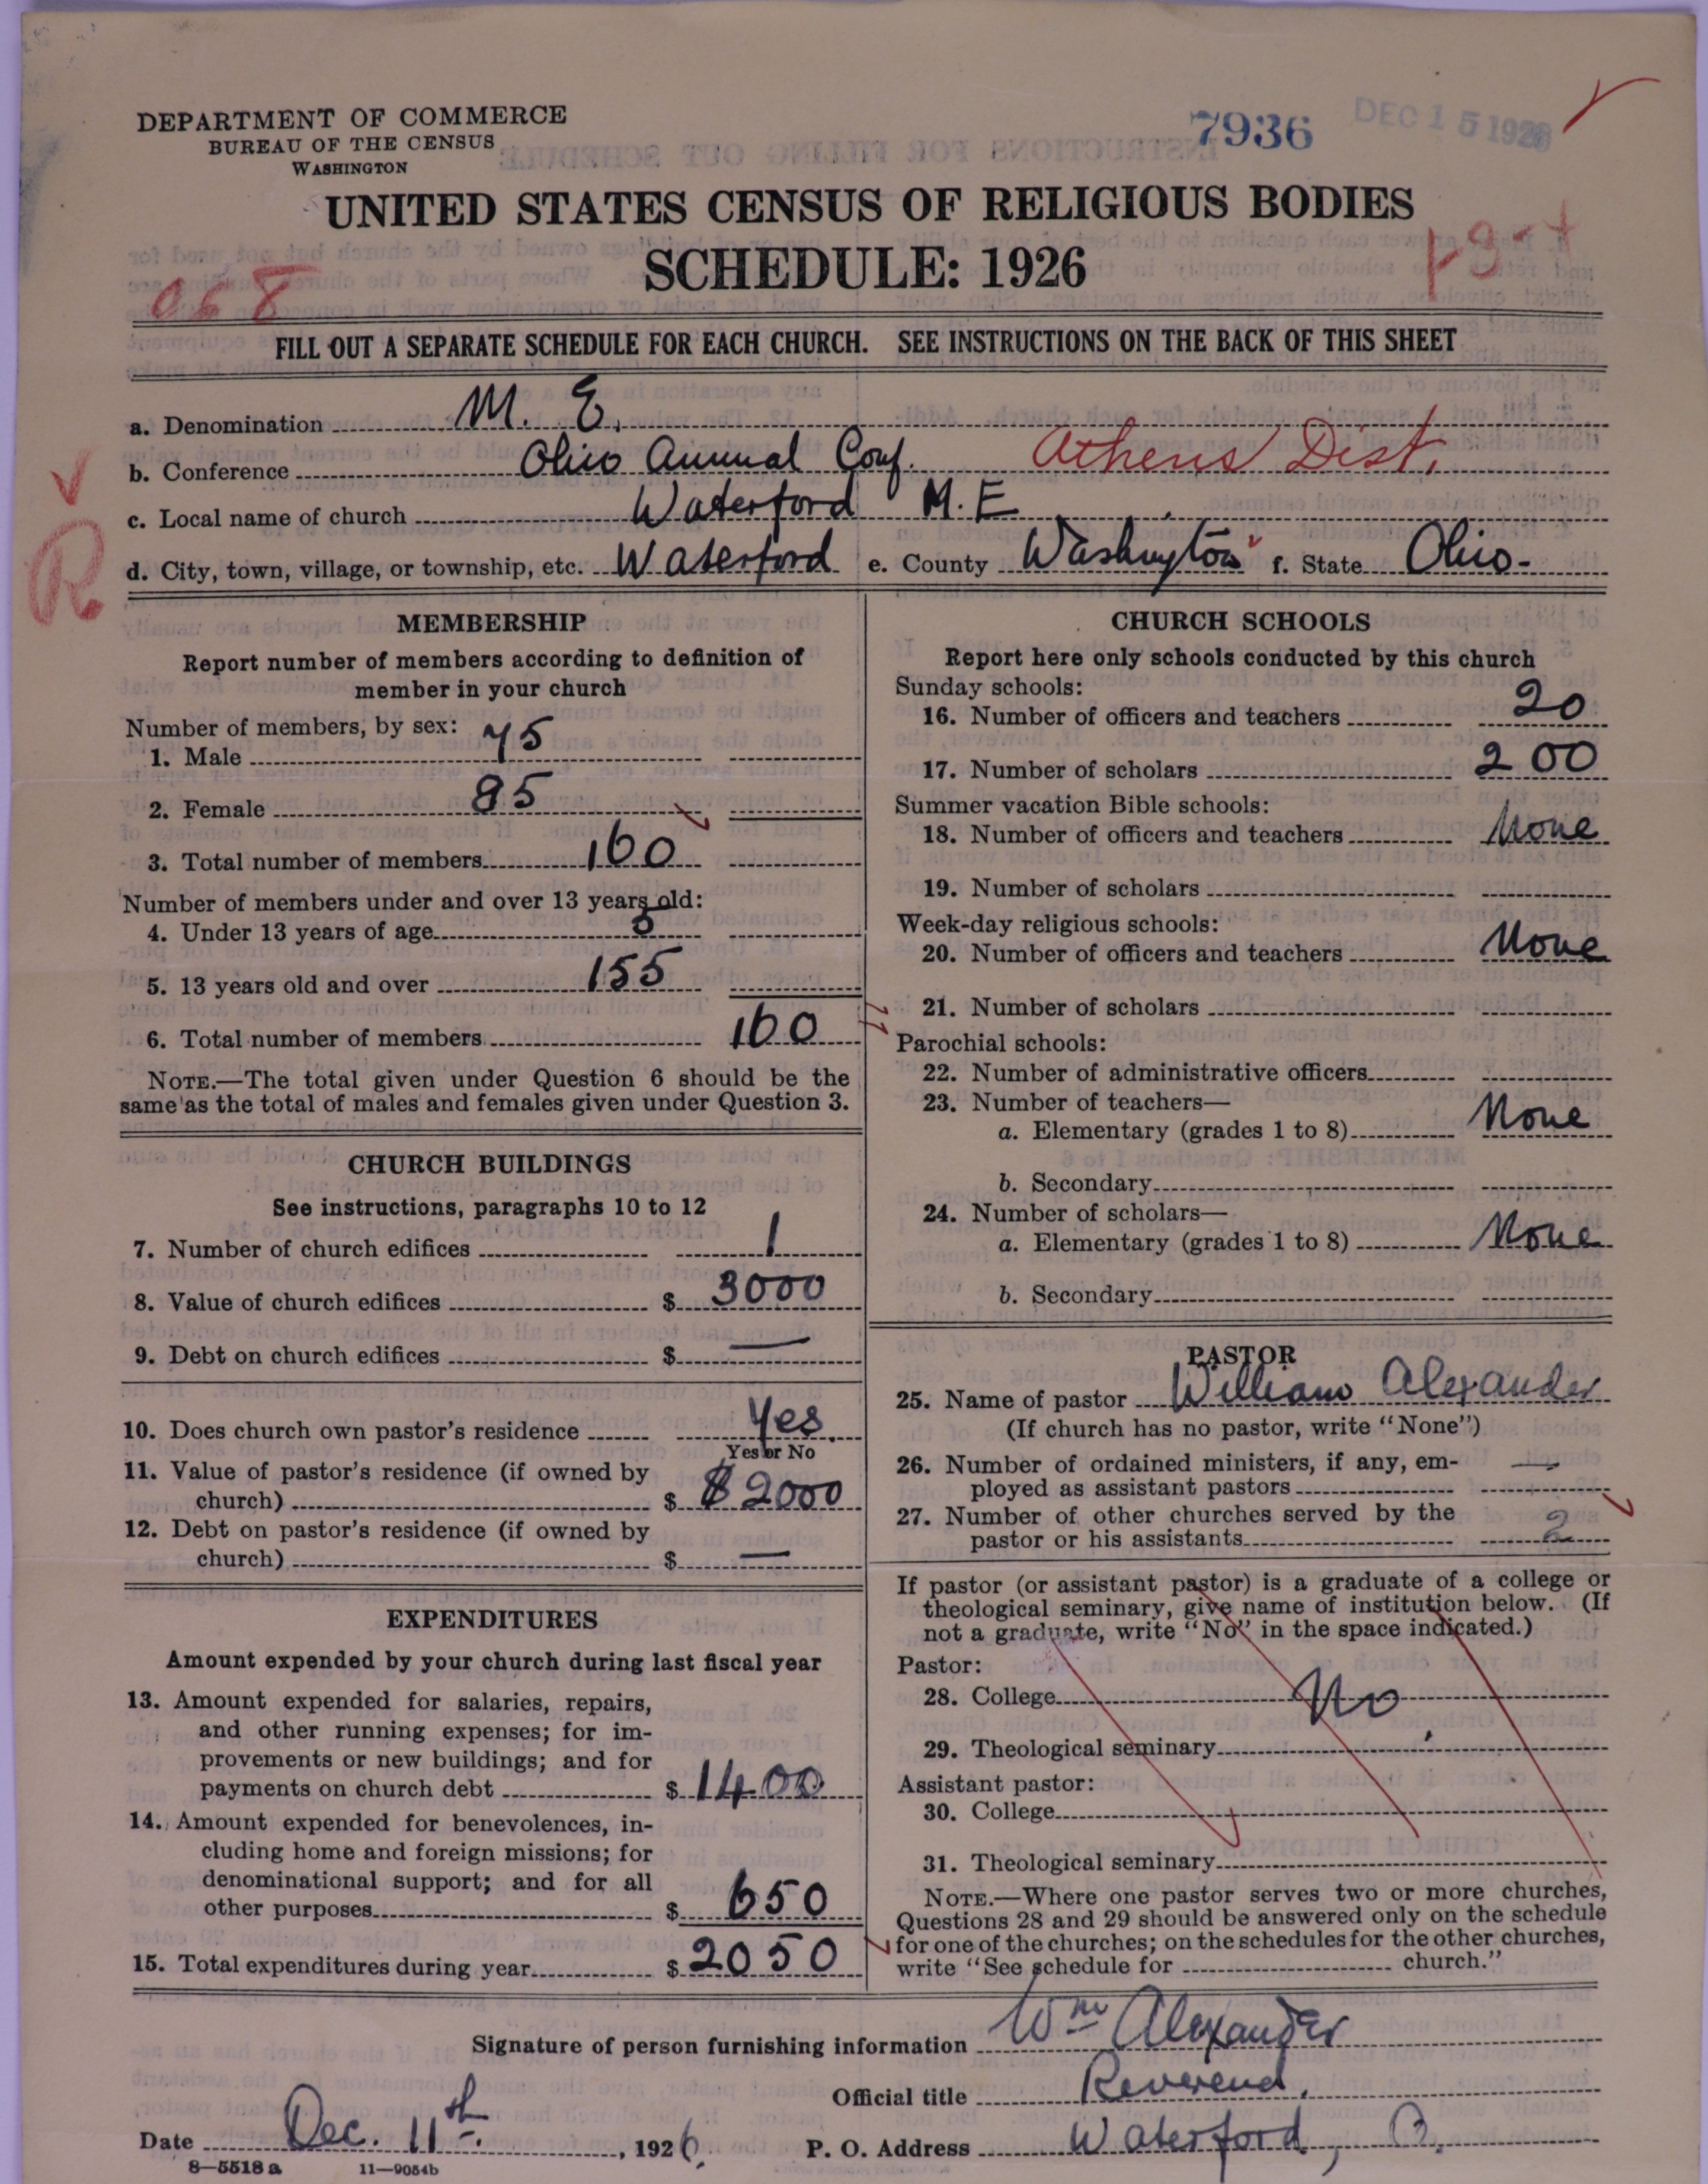 DEPARTMENT OF COMMERCE
BUREAU OF THE CENSUS
WASHINGTON
7936
DEC 15 1926
UNITED STATES CENSUS OF RELIGIOUS BODIES
SCHEDULE: 1926
068
FILL OUT A SEPARATE SCHEDULE FOR EACH CHURCH. SEE INSTRUCTIONS ON THE BACK OF THIS SHEET
a. Denomination M. E.
b. Conference Ohio Annual Conf. Athens Dist.
c. Local name of church Waterford M.E
d. City, town, village, or township, etc. Waterford e. County Washington f. State Ohio-
R
MEMBERSHIP
Report number of members according to definition of
member in your church
Number of members, by sex:
1. Male 75
2. Female 85
3. Total number of members 160
Number of members under and over 13 years old:
4. Under 13 years of age
5. 13 years old and over 155
6. Total number of members 160
NOTE.—The total given under Question 6 should be the
same as the total of males and females given under Question 3.
CHURCH BUILDINGS
See instructions, paragraphs 10 to 12
7. Number of church edifices 1
8. Value of church edifices $ 3000
9. Debt on church edifices $ —
10. Does church own pastor's residence Yes.
Yes or No
11. Value of pastor's residence (if owned by
church) $ $2000
12. Debt on pastor's residence (if owned by
church) $ —
EXPENDITURES
Amount expended by your church during last fiscal year
13. Amount expended for salaries, repairs,
and other running expenses; for im-
provements or new buildings; and for
payments on church debt $ 1400
14. Amount expended for benevolences, in-
cluding home and foreign missions; for
denominational support; and for all
other purposes $ 650
15. Total expenditures during year $ 2050
CHURCH SCHOOLS
Report here only schools conducted by this church
Sunday schools:
16. Number of officers and teachers 20
17. Number of scholars 200
Summer vacation Bible schools:
18. Number of officers and teachers None
19. Number of scholars
Week-day religious schools:
20. Number of officers and teachers None
21. Number of scholars
Parochial schools:
22. Number of administrative officers
23. Number of teachers—
a. Elementary (grades 1 to 8) None
b. Secondary
24. Number of scholars—
a. Elementary (grades 1 to 8) None
b. Secondary
PASTOR
25. Name of pastor William Alexander
(If church has no pastor, write "None")
26. Number of ordained ministers, if any, em-
ployed as assistant pastors —
27. Number of other churches served by the
pastor or his assistants 2
If pastor (or assistant pastor) is a graduate of a college or
theological seminary, give name of institution below. (If
not a graduate, write "No" in the space indicated.)
Pastor:
28. College No
29. Theological seminary
Assistant pastor:
30. College
31. Theological seminary
NOTE.—Where one pastor serves two or more churches,
Questions 28 and 29 should be answered only on the schedule
for one of the churches; on the schedules for the other churches,
write "See schedule for church."
Signature of person furnishing information Wm Alexander
Official title Reverend.
Date Dec. 11th, 1926. P. O. Address Waterford, O.
8—5518 a 11—9054b